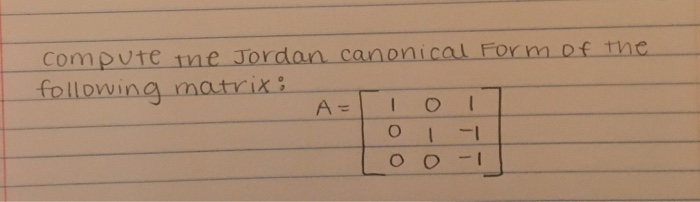 compute the Jordan canonical Form of the
following matrix:
A = [ 1 0 1
0 1 -1
0 0 -1 ]